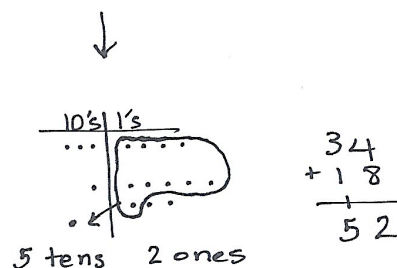 10's 1's
5 tens 2 ones
34
+ 18
1
52